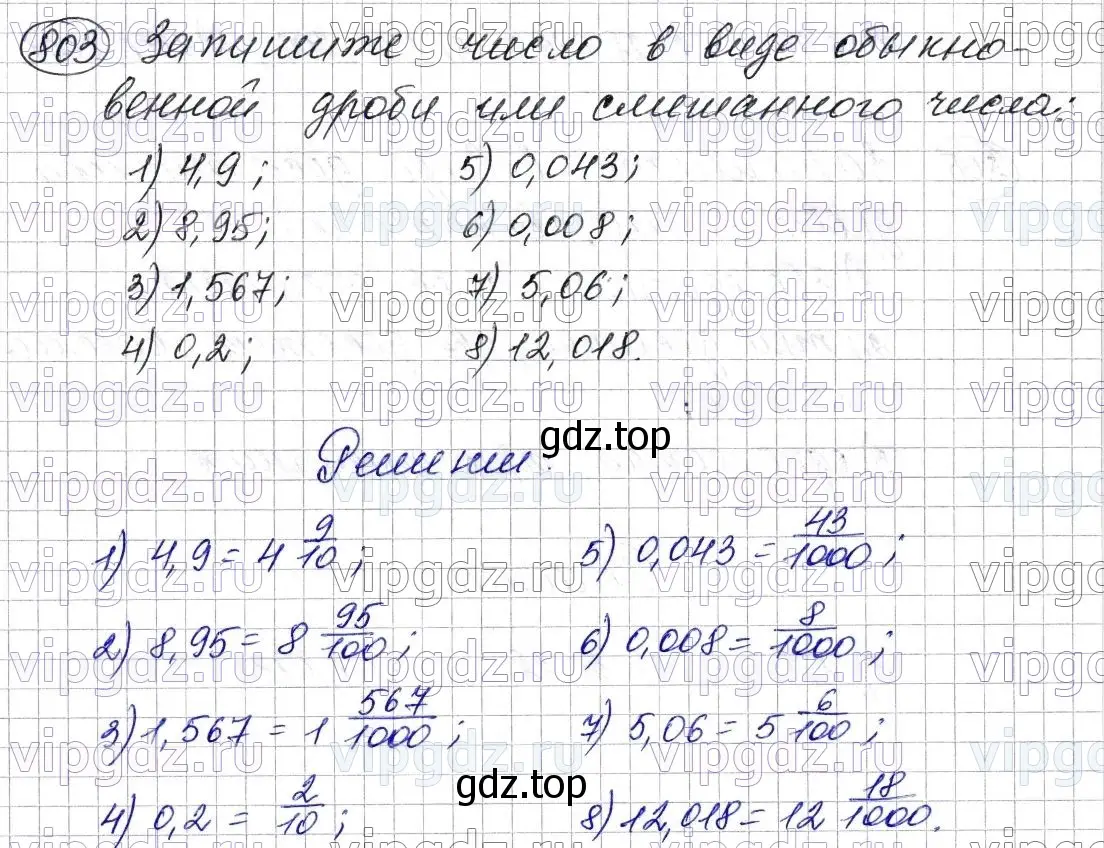 803 Запишите число в виде обыкно-
венной дроби или смешанного числа:
1) 4,9; 5) 0,043;
2) 8,95; 6) 0,008;
3) 1,567; 7) 5,06;
4) 0,2; 8) 12,018.
Решение:
gdz.top
1) 4,9 = 4 9/10; 5) 0,043 = 43/1000;
2) 8,95 = 8 95/100; 6) 0,008 = 8/1000;
3) 1,567 = 1 567/1000; 7) 5,06 = 5 6/100;
gdz.top
4) 0,2 = 2/10; 8) 12,018 = 12 18/1000.
vipgdz.ru